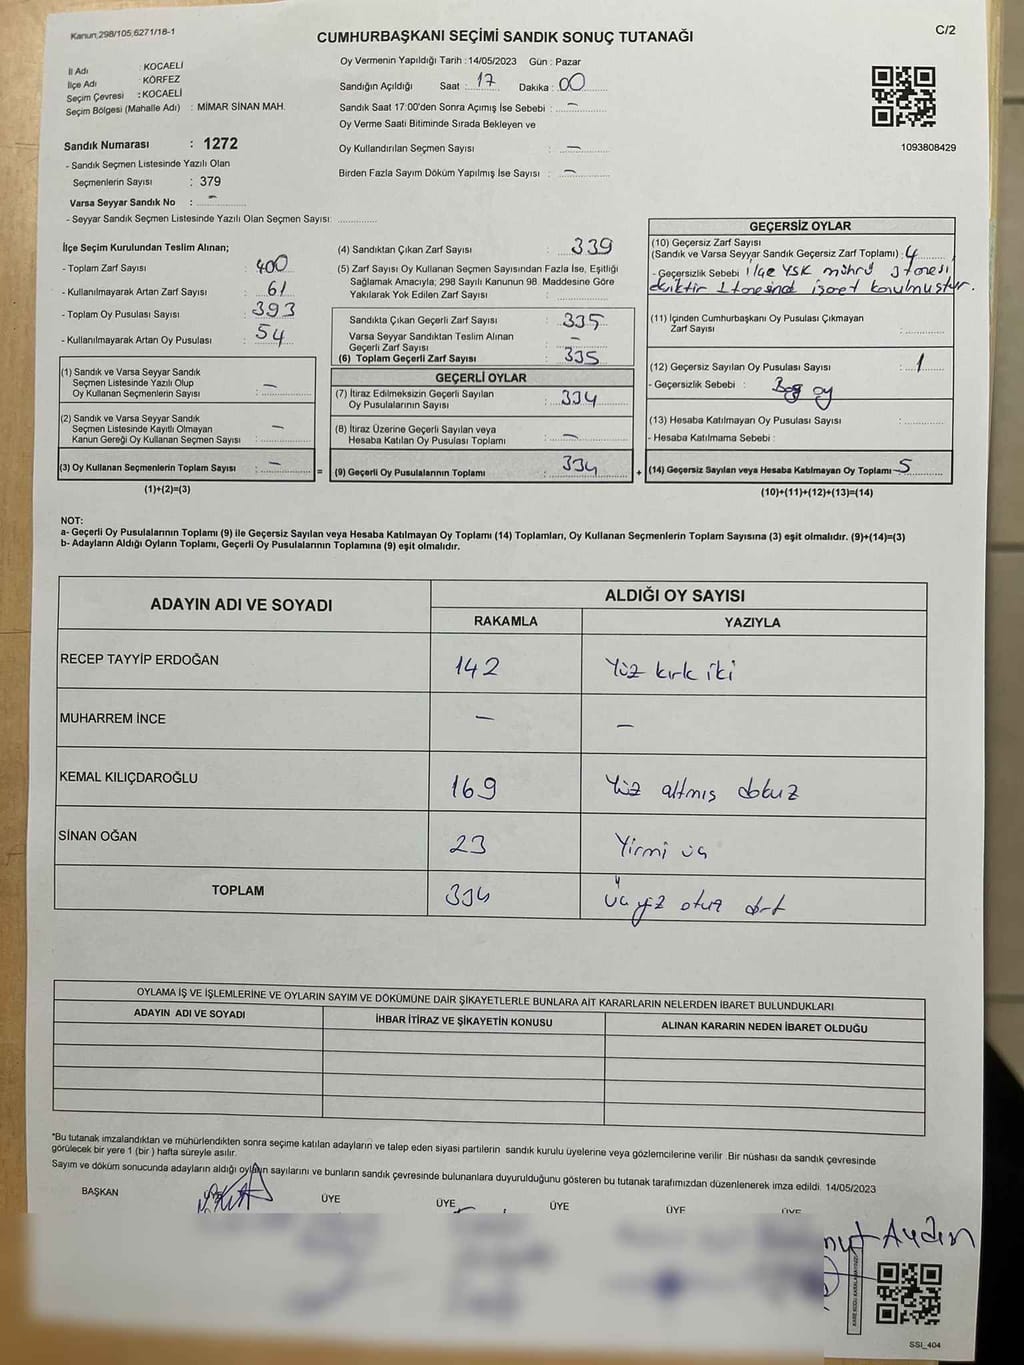 Kanun:298/105;6271/18-1
C/2
CUMHURBAŞKANI SEÇİMİ SANDIK SONUÇ TUTANAĞI
İl Adı : KOCAELİ
İlçe Adı : KÖRFEZ
Seçim Çevresi : KOCAELİ
Seçim Bölgesi (Mahalle Adı) : MİMAR SİNAN MAH.
Sandık Numarası : 1272
- Sandık Seçmen Listesinde Yazılı Olan
Seçmenlerin Sayısı : 379
Varsa Seyyar Sandık No : -
- Seyyar Sandık Seçmen Listesinde Yazılı Olan Seçmen Sayısı:
Oy Vermenin Yapıldığı Tarih : 14/05/2023 Gün : Pazar
Sandığın Açıldığı Saat : 17 Dakika : 00
Sandık Saat 17:00'den Sonra Açımış İse Sebebi : -
Oy Verme Saati Bitiminde Sırada Bekleyen ve
Oy Kullandırılan Seçmen Sayısı : -
Birden Fazla Sayım Döküm Yapılmış İse Sayısı : -
1093808429
İlçe Seçim Kurulundan Teslim Alınan;
- Toplam Zarf Sayısı : 400
- Kullanılmayarak Artan Zarf Sayısı : 61
- Toplam Oy Pusulası Sayısı : 393
- Kullanılmayarak Artan Oy Pusulası : 54
(1) Sandık ve Varsa Seyyar Sandık
Seçmen Listesinde Yazılı Olup
Oy Kullanan Seçmenlerin Sayısı : -
(2) Sandık ve Varsa Seyyar Sandık
Seçmen Listesinde Kayıtlı Olmayan
Kanun Gereği Oy Kullanan Seçmen Sayısı : -
(3) Oy Kullanan Seçmenlerin Toplam Sayısı : -
(1)+(2)=(3)
(4) Sandıktan Çıkan Zarf Sayısı : 339
(5) Zarf Sayısı Oy Kullanan Seçmen Sayısından Fazla İse, Eşitliği
Sağlamak Amacıyla; 298 Sayılı Kanunun 98. Maddesine Göre
Yakılarak Yok Edilen Zarf Sayısı :
Sandıkta Çıkan Geçerli Zarf Sayısı : 335
Varsa Seyyar Sandıktan Teslim Alınan
Geçerli Zarf Sayısı : -
(6) Toplam Geçerli Zarf Sayısı : 335
GEÇERLİ OYLAR
(7) İtiraz Edilmeksizin Geçerli Sayılan
Oy Pusulalarının Sayısı : 334
(8) İtiraz Üzerine Geçerli Sayılan veya
Hesaba Katılan Oy Pusulası Toplamı : -
= (9) Geçerli Oy Pusulalarının Toplamı : 334 +
GEÇERSİZ OYLAR
(10) Geçersiz Zarf Sayısı
(Sandık ve Varsa Seyyar Sandık Geçersiz Zarf Toplamı) : 4
- Geçersizlik Sebebi : ilçe YSK mührü 3 tanesi
eksiktir 1 tanesinde işaret konulmuştur.
(11) İçinden Cumhurbaşkanı Oy Pusulası Çıkmayan
Zarf Sayısı :
(12) Geçersiz Sayılan Oy Pusulası Sayısı : 1
- Geçersizlik Sebebi : Boş oy
(13) Hesaba Katılmayan Oy Pusulası Sayısı :
- Hesaba Katılmama Sebebi :
(14) Geçersiz Sayılan veya Hesaba Katılmayan Oy Toplamı 5
(10)+(11)+(12)+(13)=(14)
NOT:
a- Geçerli Oy Pusulalarının Toplamı (9) ile Geçersiz Sayılan veya Hesaba Katılmayan Oy Toplamı (14) Toplamları, Oy Kullanan Seçmenlerin Toplam Sayısına (3) eşit olmalıdır. (9)+(14)=(3)
b- Adayların Aldığı Oyların Toplamı, Geçerli Oy Pusulalarının Toplamına (9) eşit olmalıdır.
ADAYIN ADI VE SOYADI
ALDIĞI OY SAYISI
RAKAMLA YAZIYLA
RECEP TAYYİP ERDOĞAN 142 Yüz kırk iki
MUHARREM İNCE - -
KEMAL KILIÇDAROĞLU 169 Yüz altmış dokuz
SİNAN OĞAN 23 Yirmi üç
TOPLAM 334 Üç yüz otuz dört
OYLAMA İŞ VE İŞLEMLERİNE VE OYLARIN SAYIM VE DÖKÜMÜNE DAİR ŞİKAYETLERLE BUNLARA AİT KARARLARIN NELERDEN İBARET BULUNDUKLARI
ADAYIN ADI VE SOYADI İHBAR İTİRAZ VE ŞİKAYETİN KONUSU ALINAN KARARIN NEDEN İBARET OLDUĞU
*Bu tutanak imzalandıktan ve mühürlendikten sonra seçime katılan adayların ve talep eden siyasi partilerin sandık kurulu üyelerine veya gözlemcilerine verilir .Bir nüshası da sandık çevresinde
görülecek bir yere 1 (bir ) hafta süreyle asılır.
Sayım ve döküm sonucunda adayların aldığı oyların sayılarını ve bunların sandık çevresinde bulunanlara duyurulduğunu gösteren bu tutanak tarafımızdan düzenlenerek imza edildi. 14/05/2023
BAŞKAN ÜYE ÜYE ÜYE ÜYE ÜYE
Aydın
SSİ_404